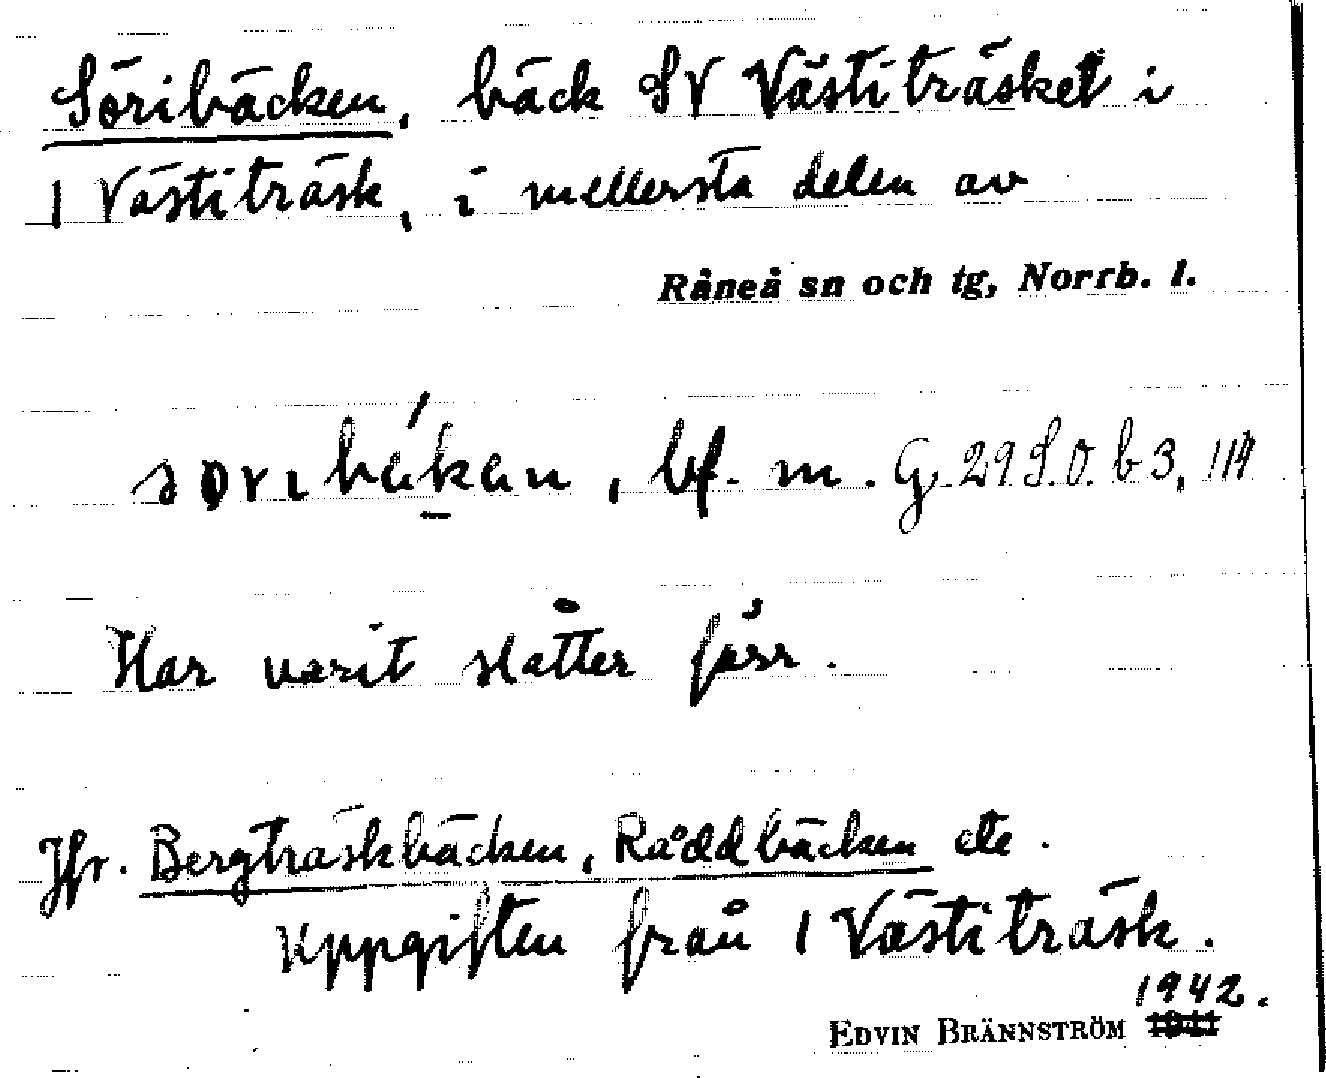 Söribäcken, bäck SV Västiträsket i
1 Västiträsk, i mellersta delen av
Råneå sn och tg, Norrb. l.
bf. m. G 29 S.O. b 3,
Har varit slåtter förr.
Jfr. Bergträskbäcken, Råddbäcken etc.
Uppgiften från 1 Västiträsk.
1942.
EDVIN BRÄNNSTRÖM 1941